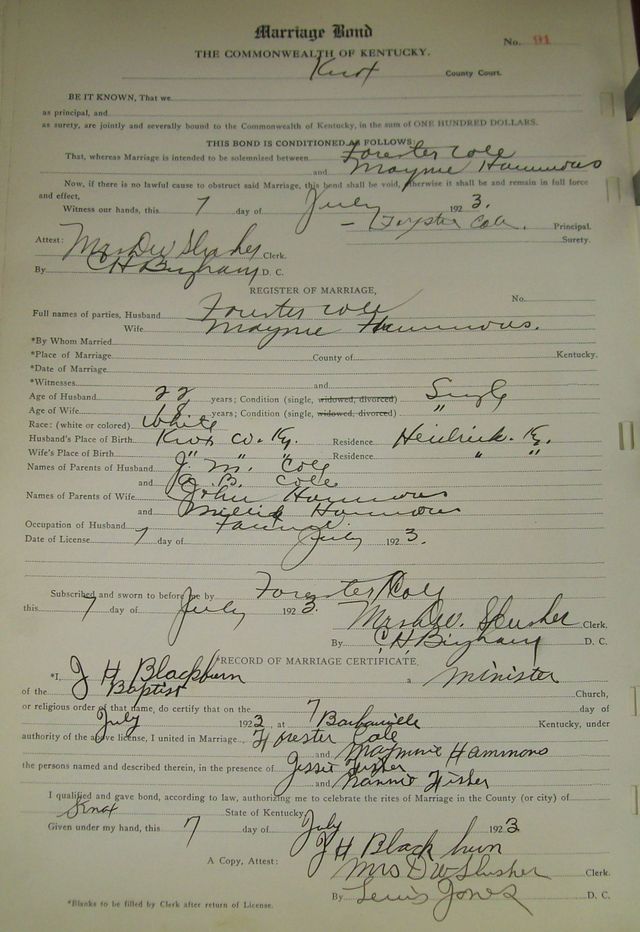 Marriage Bond
No. 91
THE COMMONWEALTH OF KENTUCKY.
Knox County Court.
BE IT KNOWN, That we
as principal, and
as surety, are jointly and severally bound to the Commonwealth of Kentucky, in the sum of ONE HUNDRED DOLLARS.
THIS BOND IS CONDITIONED AS FOLLOWS:
That, whereas Marriage is intended to be solemnized between Forester Cole
and Mayme Hammons
Now, if there is no lawful cause to obstruct said Marriage, this bond shall be void, otherwise it shall be and remain in full force
and effect,
Witness our hands, this 7 day of July 1923.
Forester Cole. Principal.
Surety.
Attest: Mrs D W Slusher Clerk.
By C H Bingham D. C.
REGISTER OF MARRIAGE,
No.
Full names of parties, Husband Forester Cole
Wife Mayme Hammons.
*By Whom Married
*Place of Marriage County of Kentucky.
*Date of Marriage
*Witnesses and
Age of Husband 22 years; Condition (single, widowed, divorced) Single
Age of Wife 18 years; Condition (single, widowed, divorced) "
Race: (white or colored) White
Husband's Place of Birth Knox Co. Ky. Residence Heidrick. Ky.
Wife's Place of Birth " " " Residence " "
Names of Parents of Husband J. M. Cole
and B. Cole
Names of Parents of Wife John Hammons
and Hammons
Occupation of Husband Farming
Date of License 7 day of July 1923.
Subscribed and sworn to before me by Forester Cole
this 7 day of July 1923.
Mrs D. W. Slusher Clerk.
By C, H, Bingham D. C.
RECORD OF MARRIAGE CERTIFICATE,
*I, J H Blackburn a Minister
of the Baptist Church,
or religious order of that name, do certify that on the 7 day of
July 1923, at Barbourville Kentucky, under
authority of the above license, I united in Marriage Forester Cole
and Maymie Hammons
the persons named and described therein, in the presence of Jessie Fisher
and Nannie Fisher
I qualified and gave bond, according to law, authorizing me to celebrate the rites of Marriage in the County (or city) of
Knox State of Kentucky
Given under my hand, this 7 day of July 1923
J H Blackburn
A Copy, Attest: Mrs D W Slusher Clerk.
By Lewis Jones D. C.
*Blanks to be filled by Clerk after return of License.